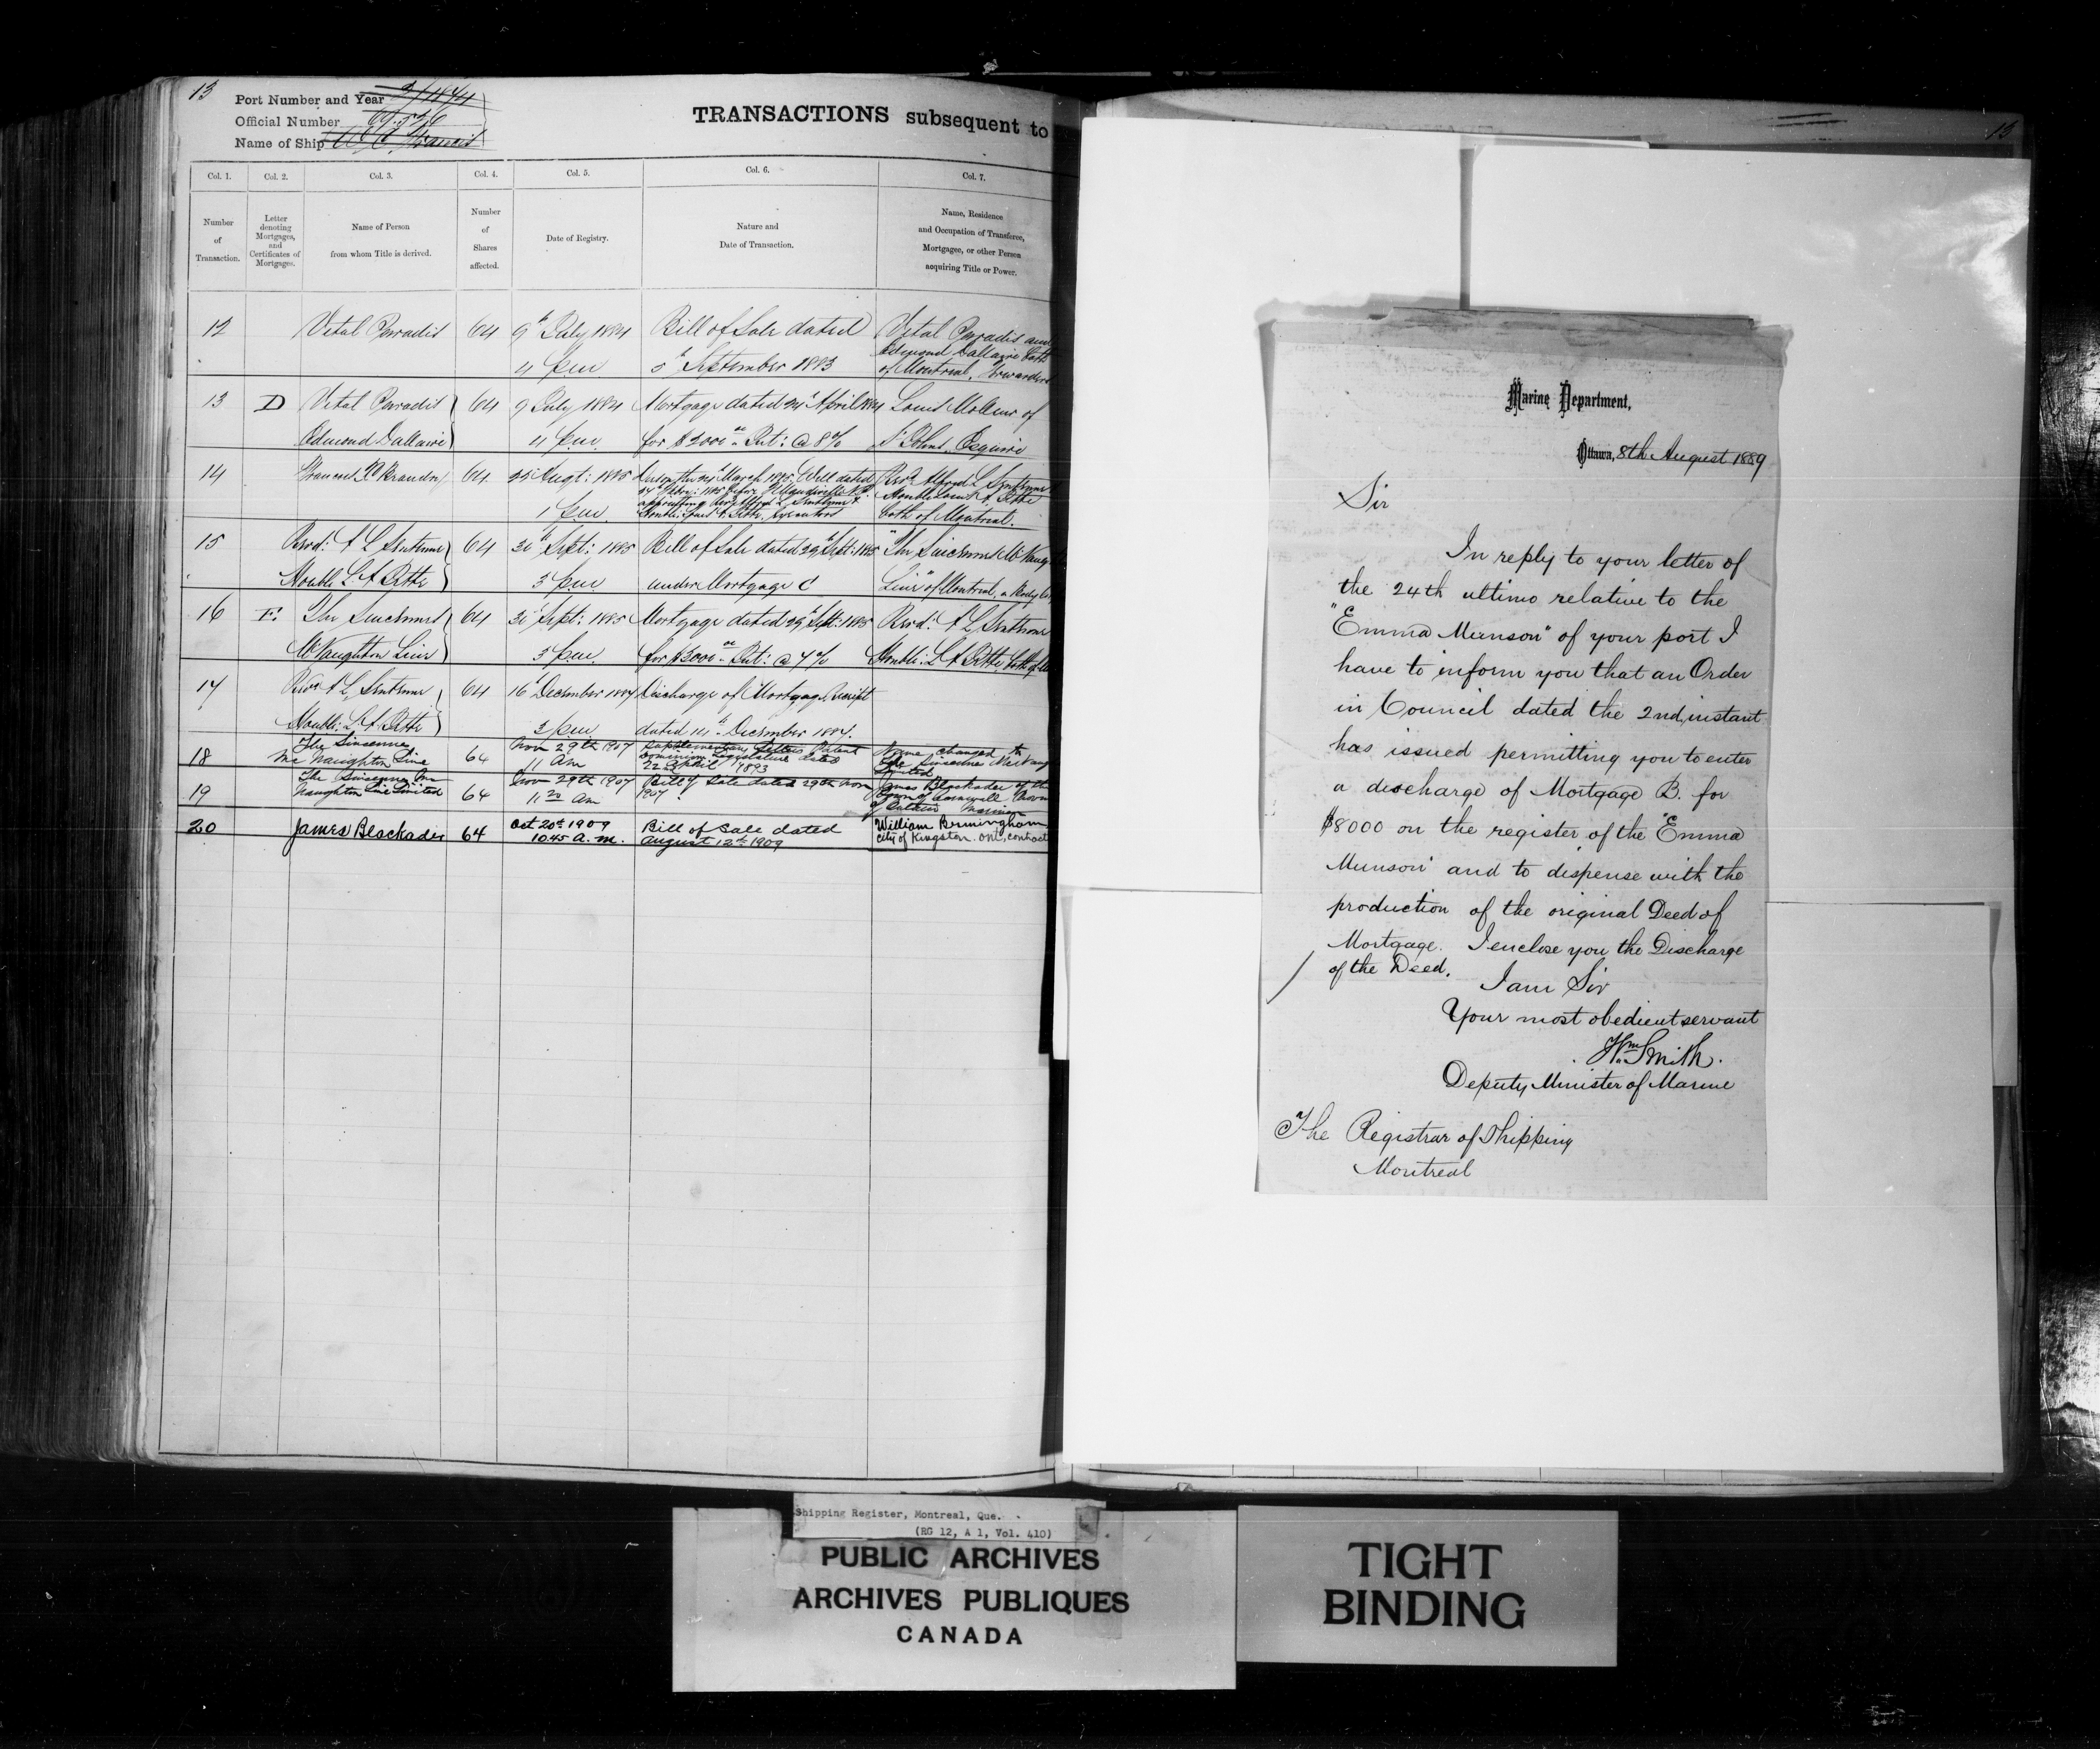 13
Port Number and Year
Official Number
Name of Ship
TRANSACTIONS subsequent to
Col. 1. Col. 2. Col. 3. Col. 4. Col. 5. Col. 6. Col. 7.
Number of Transaction.
Letter denoting Mortgages, and Certificates of Mortgages.
Name of Person from whom Title is derived.
Number of Shares affected.
Date of Registry.
Nature and Date of Transaction.
Name, Residence and Occupation of Transferee, Mortgagee, or other Person acquiring Title or Power.
12 Vital Paradis 64 9th July 1884 Bill of Sale dated Vital Paradis and
Edmond Dallaire both
4 p.m. 5th September 1883 of Montreal, Forwarders
13 D Vital Paradis 64 9 July 1884 Mortgage dated April 1884 Louis Molleur of
Edmond Dallaire 4 p.m. for $2000 Int: @ 8% St Johns, Esquire
14 64 25 Augt: 1885 March 1885, Will dated
1 p.m. both of Montreal.
15 Revd: A L Sentenne 64 Sept: 1885 Bill of Sale dated 29th Sept: 1885 "The Sincennes McNaug
Honble L. A. Jetté 3 p.m. under Mortgage C Line" of Montreal, a Body
16 E. The Sincennes 64 Sept: 1885 Mortgage dated 29th Sept: 1885 Revd: A L Sentenne
McNaughton Line 3 p.m. for $3000 Int: @ 7% Honble: L A Jetté both of
17 Revd A L Sentenne 64 16 December 1887 Discharge of Mortgage Receipt
Honble: L A Jetté 3 p.m. dated 14th December 1887.
18 The Sincenne McNaughton Line 64 Nov 29th 1907 11 Am Supplementary Letters Patent Dominion Legislature dated 22 April 1893 Name changed to The Sincennes McNaug Limited
19 The Sincennes McNaughton Line Limited 64 Nov 29th 1907 11 20 Am Bill of Sale dated 29th Nov 1907 James Blackader of the Town of Cornwall Prov of Ontario Mariner
20 James Blackader 64 Oct 20th 1909 Bill of Sale dated William Bermingham
10.45 a.m. August 12th 1909 City of Kingston. Ont, contract
13
Marine Department,
Ottawa, 8th August 1889
Sir
In reply to your letter of
the 24th ultimo relative to the
"Emma Munson" of your port I
have to inform you that an Order
in Council dated the 2nd instant
has issued permitting you to enter
a discharge of Mortgage B. for
$8000 on the register of the "Emma
Munson" and to dispense with the
production of the original Deed of
Mortgage. I enclose you the Discharge
of the Deed.
I am Sir
Your most obedient servant
Wm Smith.
Deputy Minister of Marine
The Registrar of Shipping
Montreal
Shipping Register, Montreal, Que.
(RG 12, A 1, Vol. 410)
PUBLIC ARCHIVES
ARCHIVES PUBLIQUES
CANADA
TIGHT
BINDING